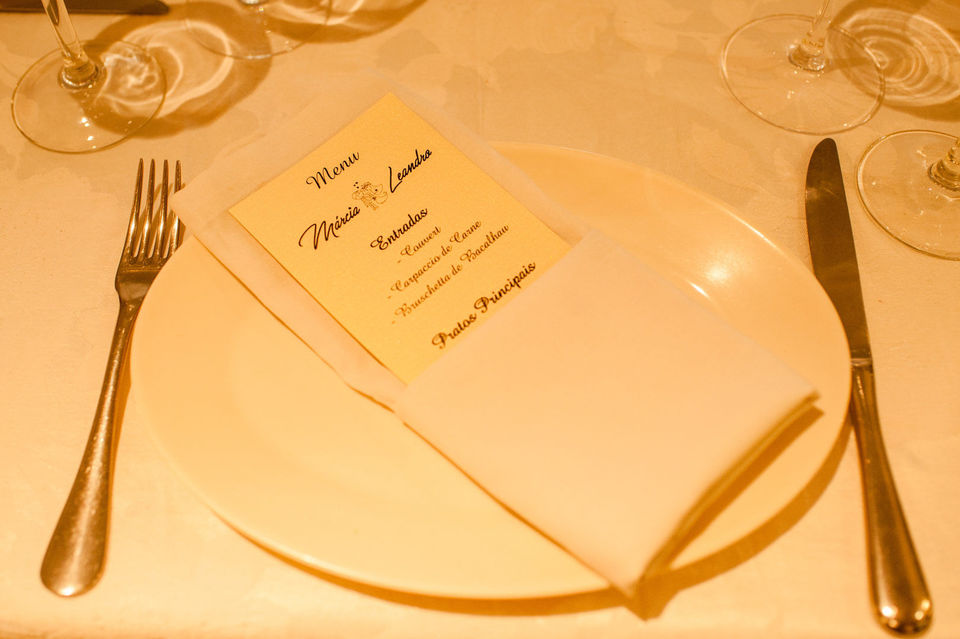 Menu
Márcia Leandro
Entradas
- Couvert
- Carpaccio de Carne
- Bruschetta de Bacalhau
Pratos Principais